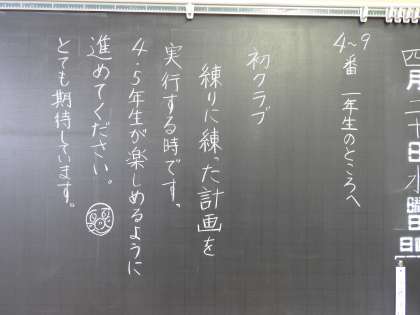 四月二十日水曜日
日曜
4~9番 一年生のところへ
初クラブ
練りに練った計画を
実行する時です。
4・5年生が楽しめるように
進めてください。
とても期待しています。